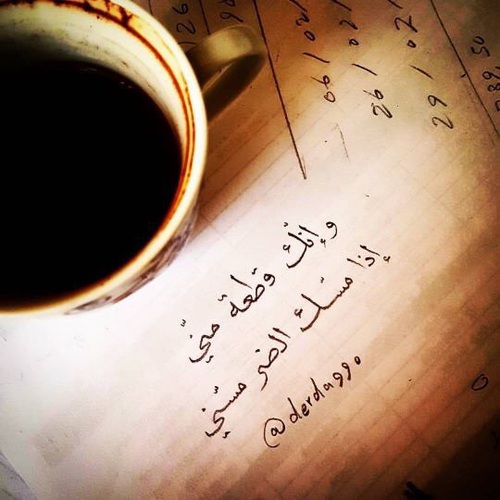 وإنّك قطعة منّي
إذا مسّك الضر مسّني
@derda990
06/02/
26/02/
29/02/